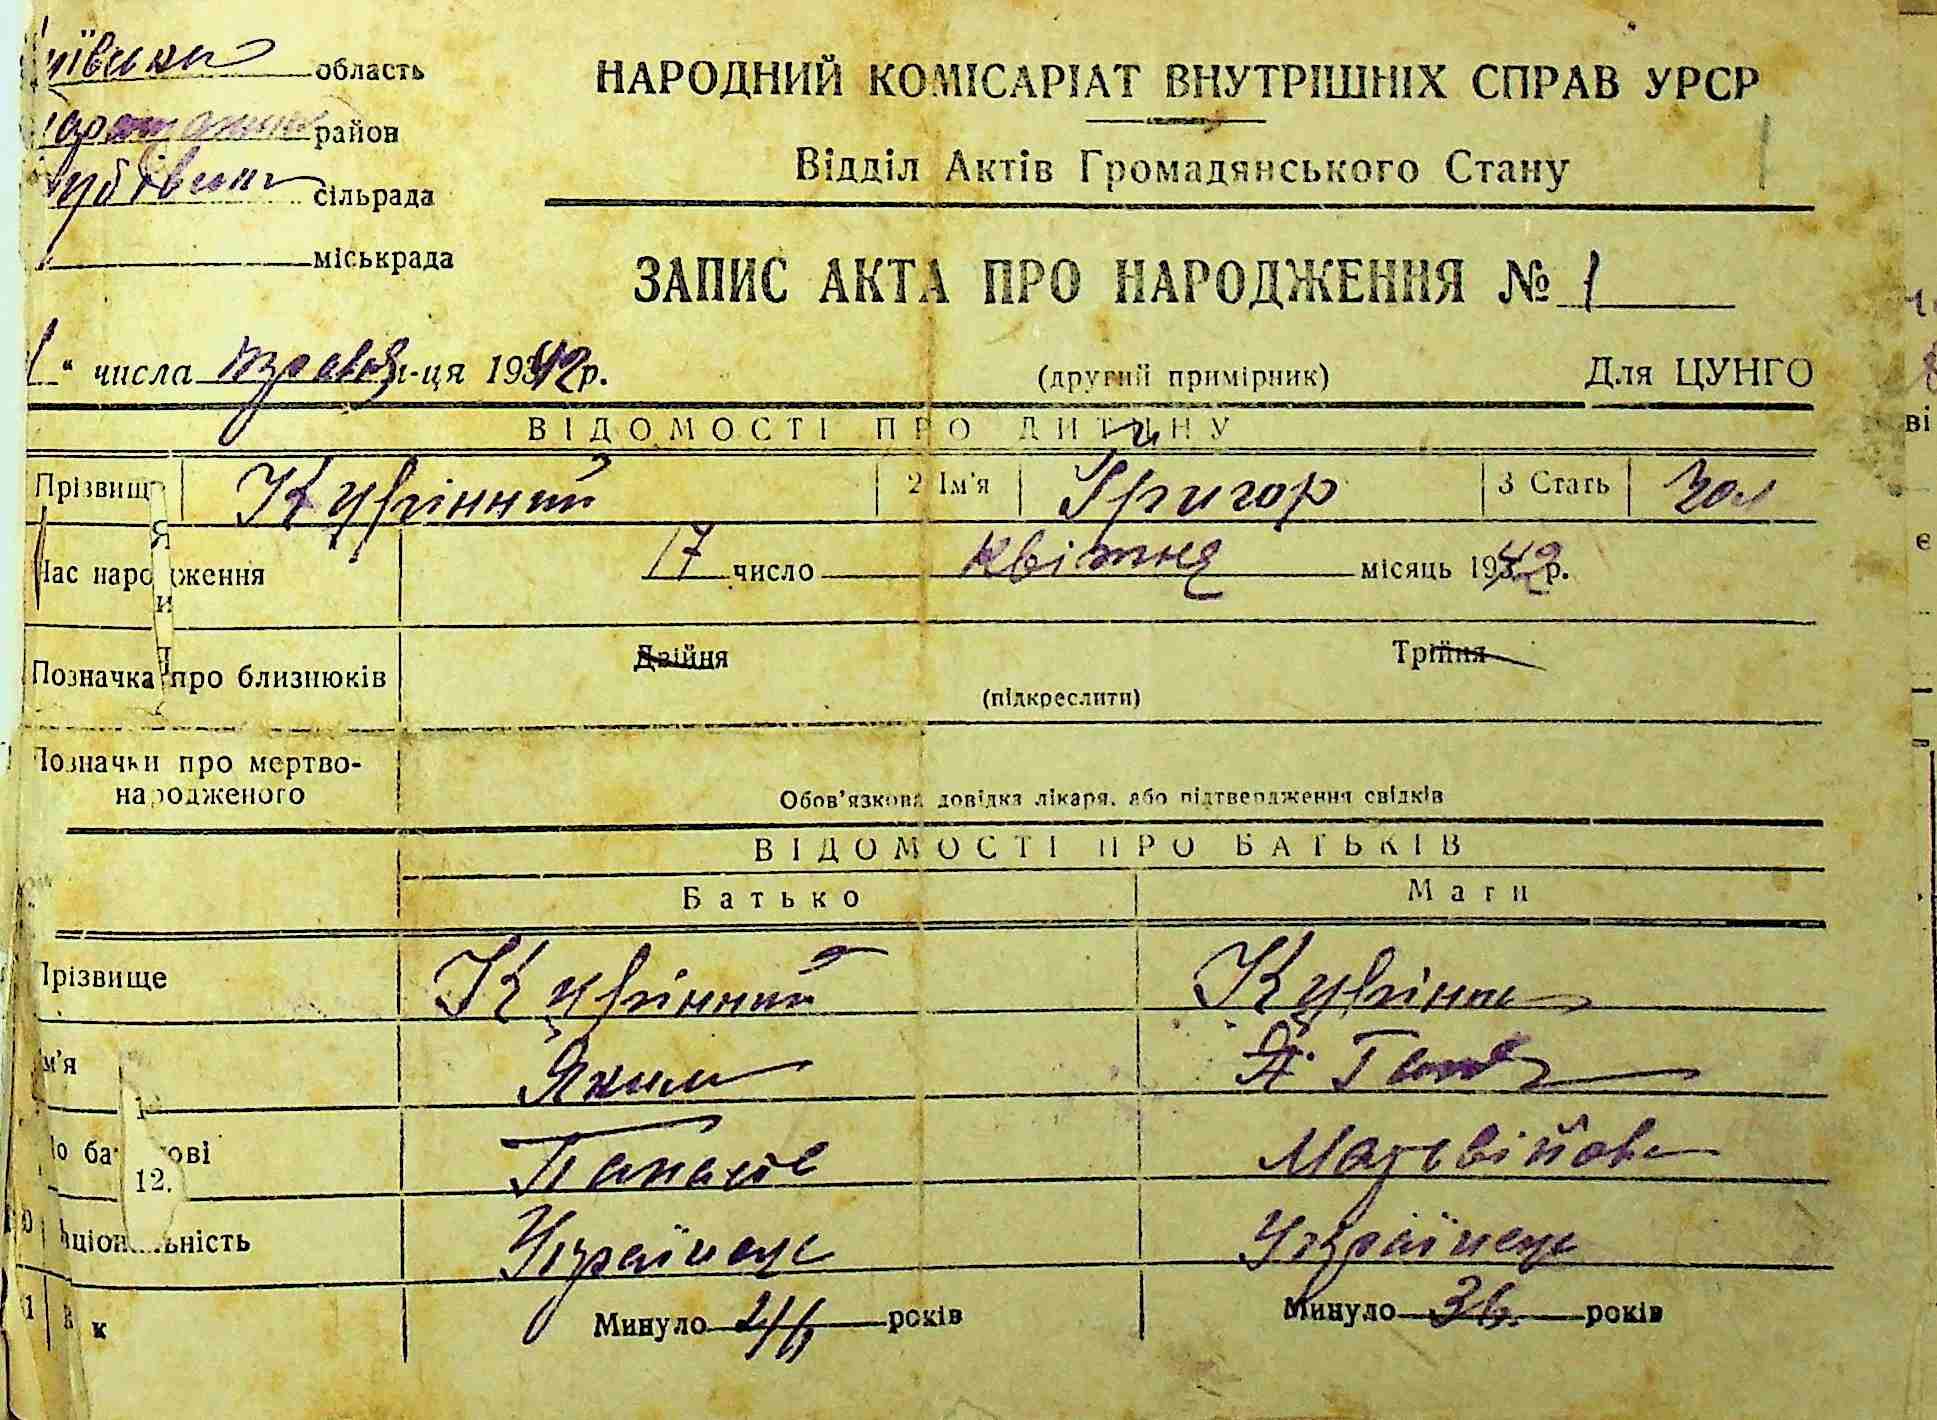 область
НАРОДНИЙ КОМІСАРІАТ ВНУТРІШНІХ СПРАВ УРСР
район
Відділ Актів Громадянського Стану
сільрада
міськрада
ЗАПИС АКТА ПРО НАРОДЖЕННЯ № 1
1 " числа травня м-ця 1942 р.
(другий примірник) Для ЦУНГО
ВІДОМОСТІ ПРО ДИТИНУ
Прізвище Курінний 2 Ім'я Григор 3 Стать Чол
Час народження 17 число квітня місяць 1942 р.
Позначка про близнюків Двійня Трійня
(підкреслити)
Позначки про мертво-
народженого
Обов'язкова довідка лікаря, або підтвердження свідків
ВІДОМОСТІ ПРО БАТЬКІВ
Батько Мати
Прізвище Курінний Курінна
Ім'я Яким
По батькові Панасов Матьвійовна
12.
Національність Українець Українець
Минуло років Минуло 36. років